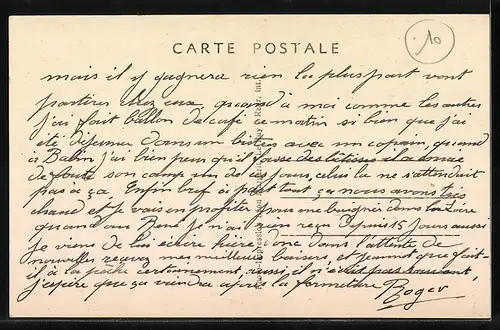 10
CARTE POSTALE
mais il y gagnera rien la pluspart vont
partirs chez eux, quand à moi comme les autres
j'ai fait ballon de café ce matin si bien que j'ai
été déjeuner dans un bistro avec un copain, quand
à j'ai bien peur qu'il fasse des bêtises il a envie
de foutre son camp un de ces jours, celui là ne s'attendait
pas à ça. Enfin bref à part tout ça nous avons très
chaud et je vais en profiter pour me baigner dans la Loire
quand aux René je n'ai rien reçu depuis 15 jours aussi
je viens de lui écrire hière, donc dans l'attente de
nouvelles reçois mes meilleurs baisers et que fait-
il à la pêche certainement, aussi il n'écrit pas souvent,
j'espère que ça viendra après la fermeture Roger